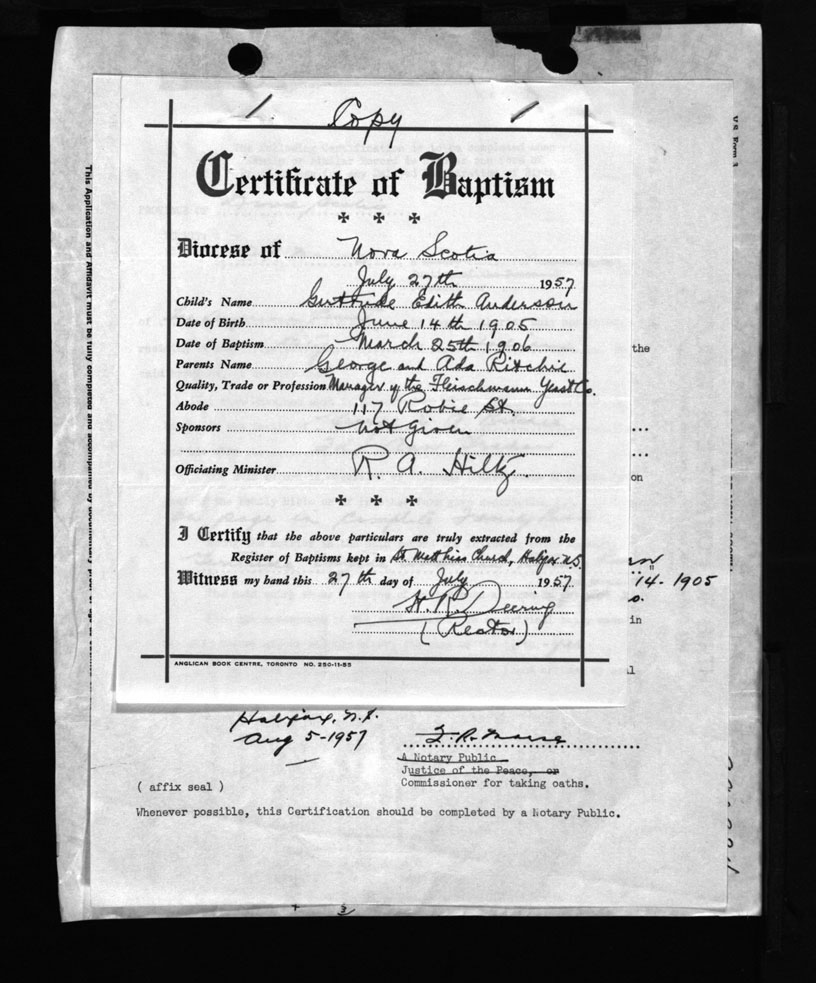 Copy
Certificate of Baptism
Diocese of Nova Scotia
July 27th 1957
Child's Name Gertrude Edith Anderson
Date of Birth June 14th 1905
Date of Baptism March 25th 1906
Parents Name George and Ada Ritchie
Quality, Trade or Profession Manager of the Fleischmann Yeast Co.
Abode 117 Robie St.
Sponsors not given
Officiating Minister R. A. Hiltz
I Certify that the above particulars are truly extracted from the
Register of Baptisms kept in St Matthias Church, Halifax N.S.
Witness my hand this 27th day of July 1957
H. R. Deering
(Rector)
ANGLICAN BOOK CENTRE, TORONTO NO. 250-11-55
the
on
14- 1905
in
Halifax, N.S.
Aug 5-1957
A Notary Public
Justice of the Peace, or
Commissioner for taking oaths.
( affix seal )
Whenever possible, this Certification should be completed by a Notary Public.
This Application and Affidavit must be fully completed and accompanied by documentary proof of age
V.S. Form 3